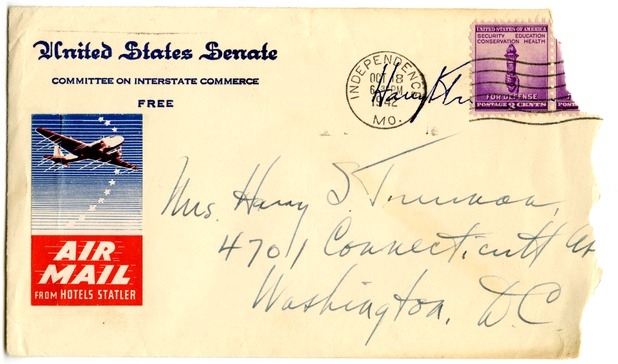 United States Senate
COMMITTEE ON INTERSTATE COMMERCE
FREE
INDEPENDENCE
OCT 18
PM
1942
MO.
Harry
UNITED STATES OF AMERICA
SECURITY EDUCATION
CONSERVATION HEALTH
FOR DEFENSE
POSTAGE
CENTS
POS
AIR
MAIL
FROM HOTELS STATLER
Mrs. Harry S. Truman,
4701 Connecticutt Av
Washington, D.C.